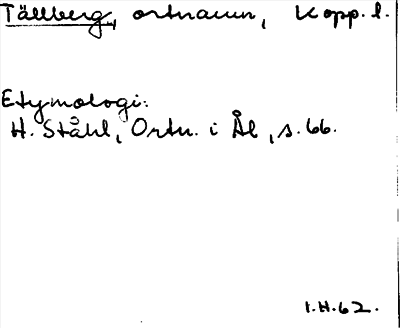 Tällberg, ortnamn, Kopp. l.
Etymologi:
H. Ståhl, Ortn. i Ål, s. 66.
1.H.62.